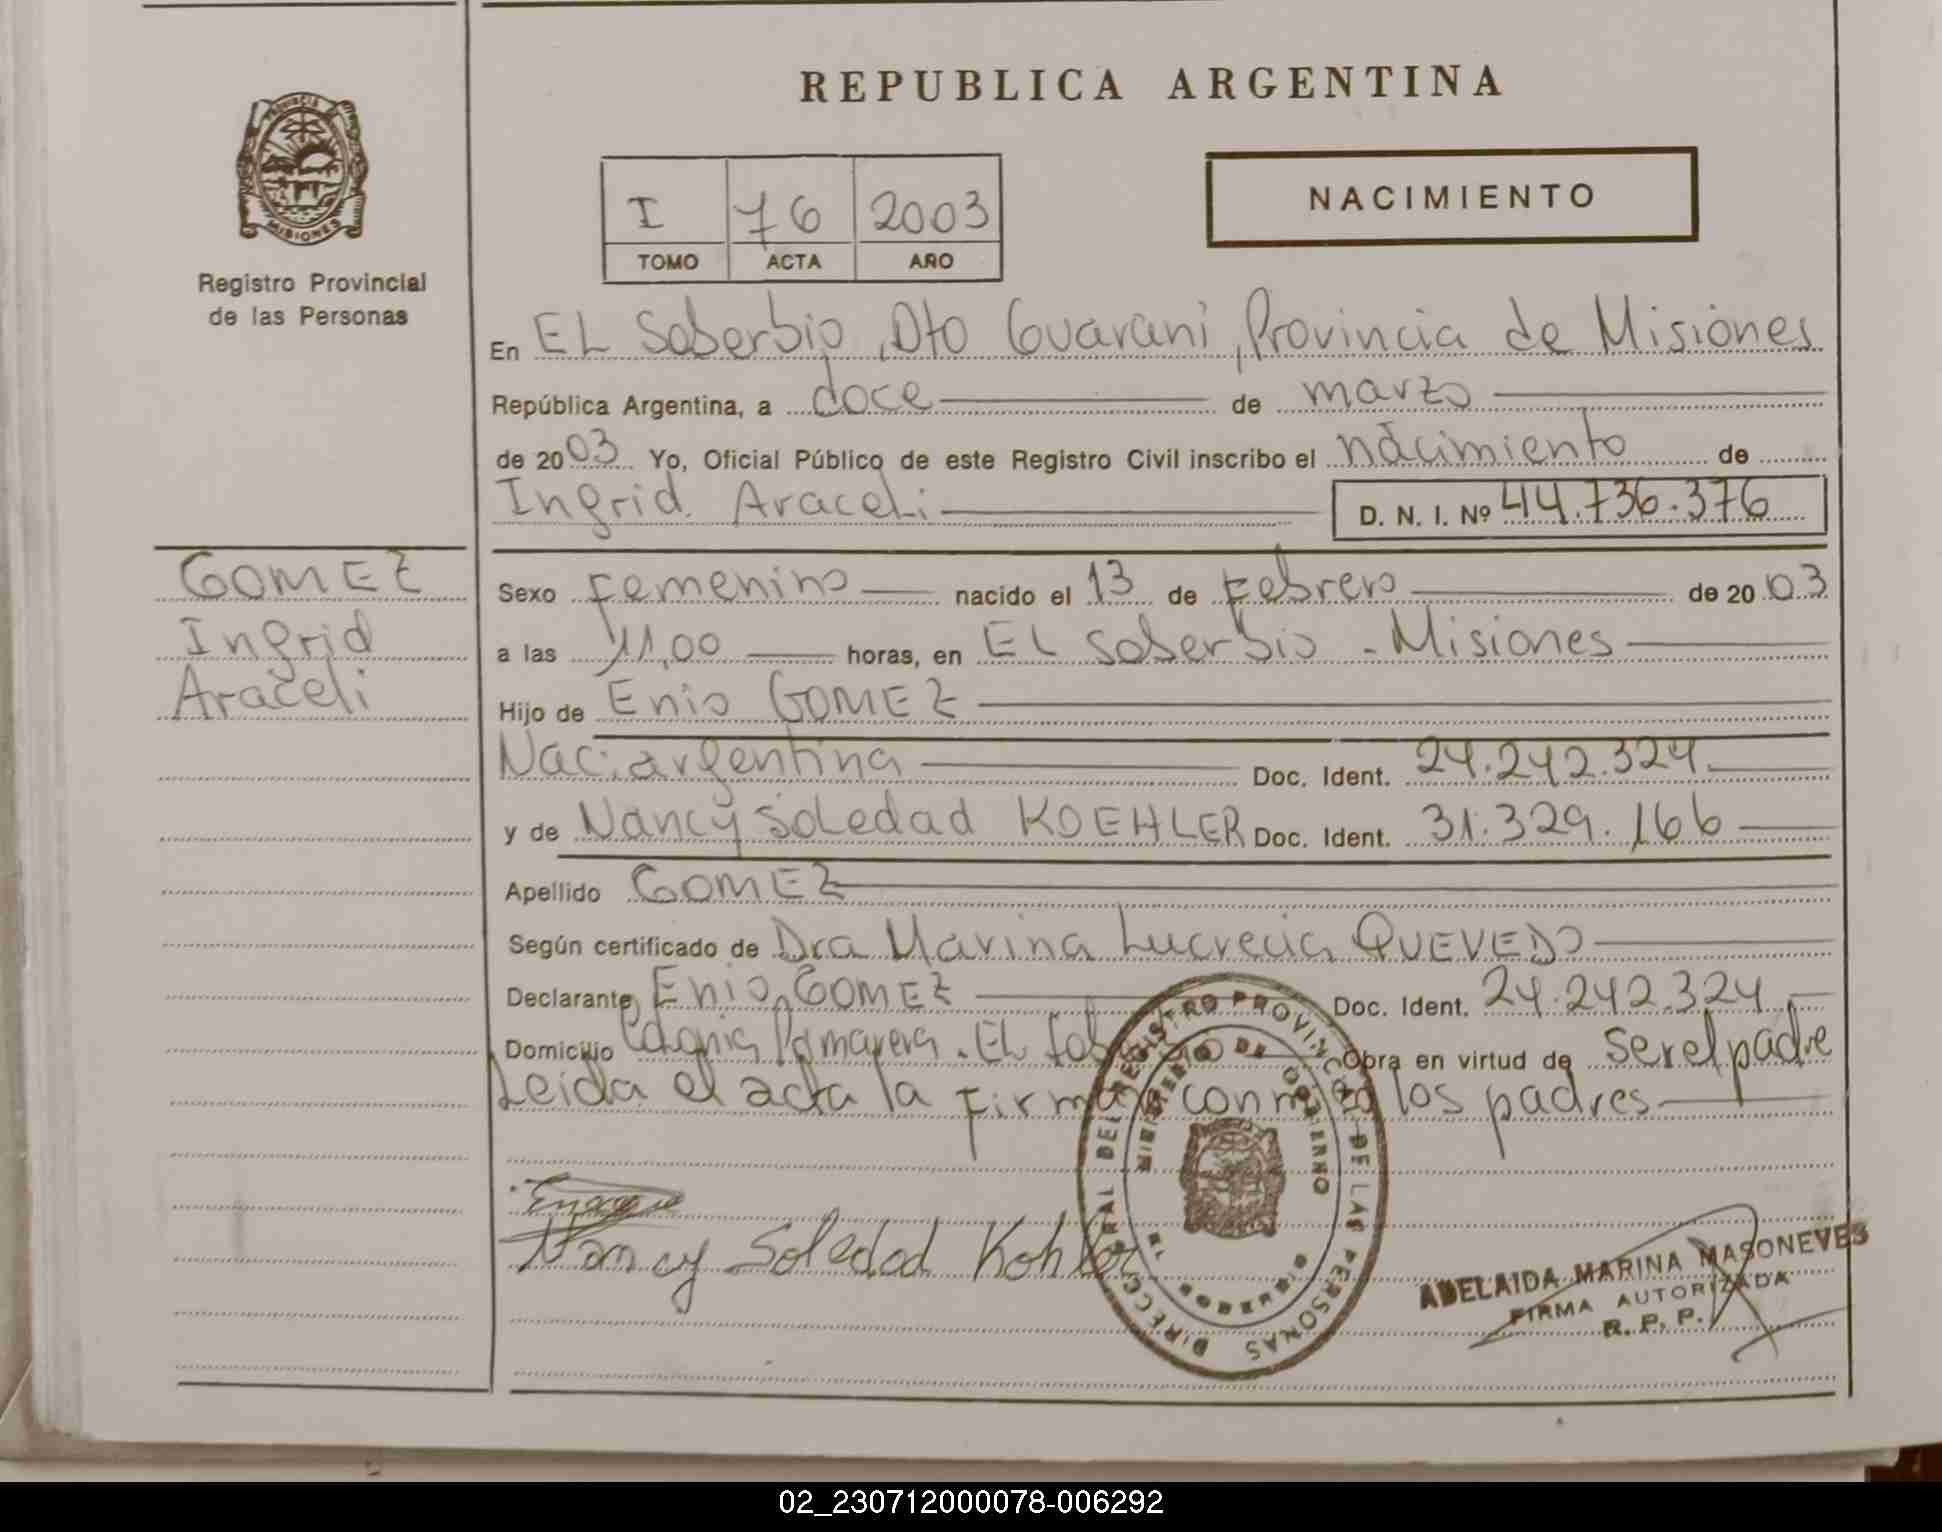 REPUBLICA ARGENTINA
NACIMIENTO
I 76 2003
TOMO ACTA AÑO
Registro Provincial
de las Personas
En EL Soberbio, Dto Guarani, Provincia de Misiones
República Argentina, a doce de marzo
de 2003 Yo, Oficial Público de este Registro Civil inscribo el nacimiento de
Ingrid Araceli D. N. I. Nº 44.736.376
GOMEZ
Ingrid
Araceli
Sexo Femenino nacido el 13 de Febrero de 2003
a las 11,00 horas, en EL Soberbio - Misiones
Hijo de Enio GOMEZ
Nac. argentina Doc. Ident. 24.242.324
y de Nancy Soledad KOEHLER Doc. Ident. 31.329.166
Apellido GOMEZ
Según certificado de Dra Marina Lucrecia QUEVEDO
Declarante Enio GOMEZ Doc. Ident. 24.242.324
Domicilio Colonia Primavera. EL Soberbio Obra en virtud de ser el padre
Leida el acta la firman conmigo los padres
Nancy Soledad Kohler
DIRECCION GENERAL DEL REGISTRO PROVINCIAL DE LAS PERSONAS
MINISTERIO DE GOBIERNO
EL SOBERBIO
MISIONES
ADELAIDA MARINA MASONEVES
FIRMA AUTORIZADA
R. P. P.
02_230712000078-006292